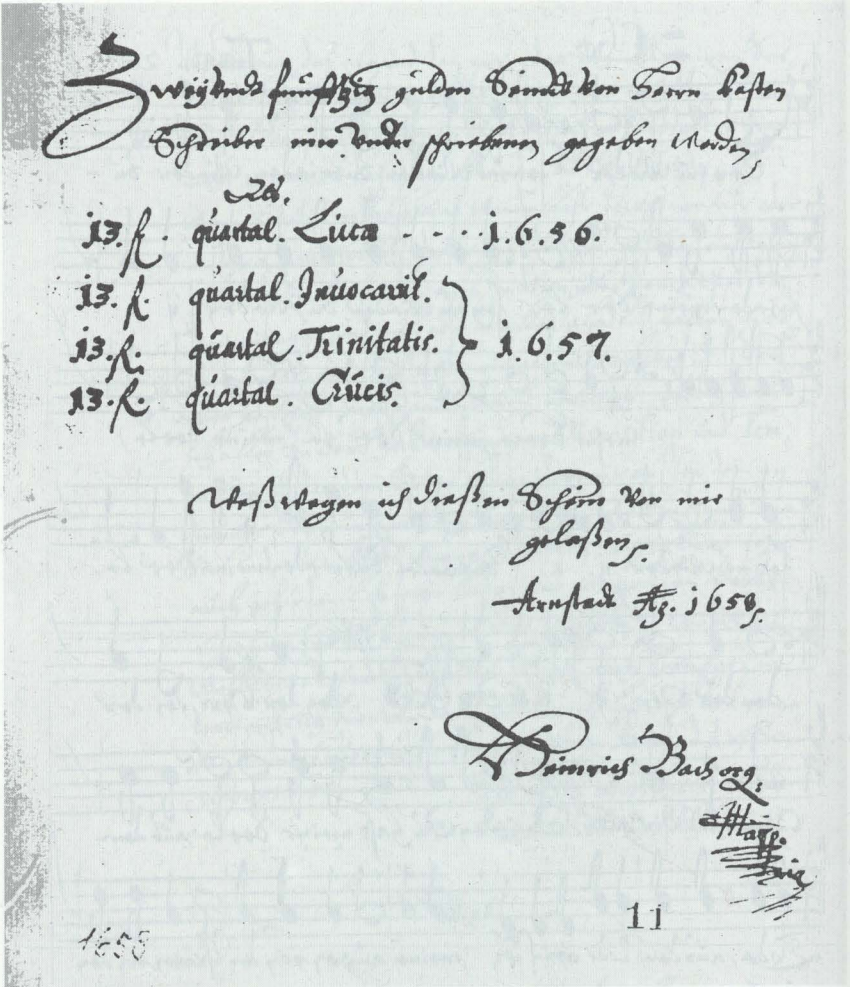 Zweyundt funfftzig gülden Seindt von Herrn Kasten
Schreiber mir Unter schriebenen gegeben worden,
Als.
13. fl. quartal. Lucæ - - - - 1.6.56.
13. fl. quartal. Invocavit.
13. fl. quartal. Trinitatis. } 1.6.57.
13. fl. quartal. Crücis.
Weßwegen ich dießen Schein von mir
gelaßen.
Arnstadt 1658.
Heinrich Bach org.
11
1658